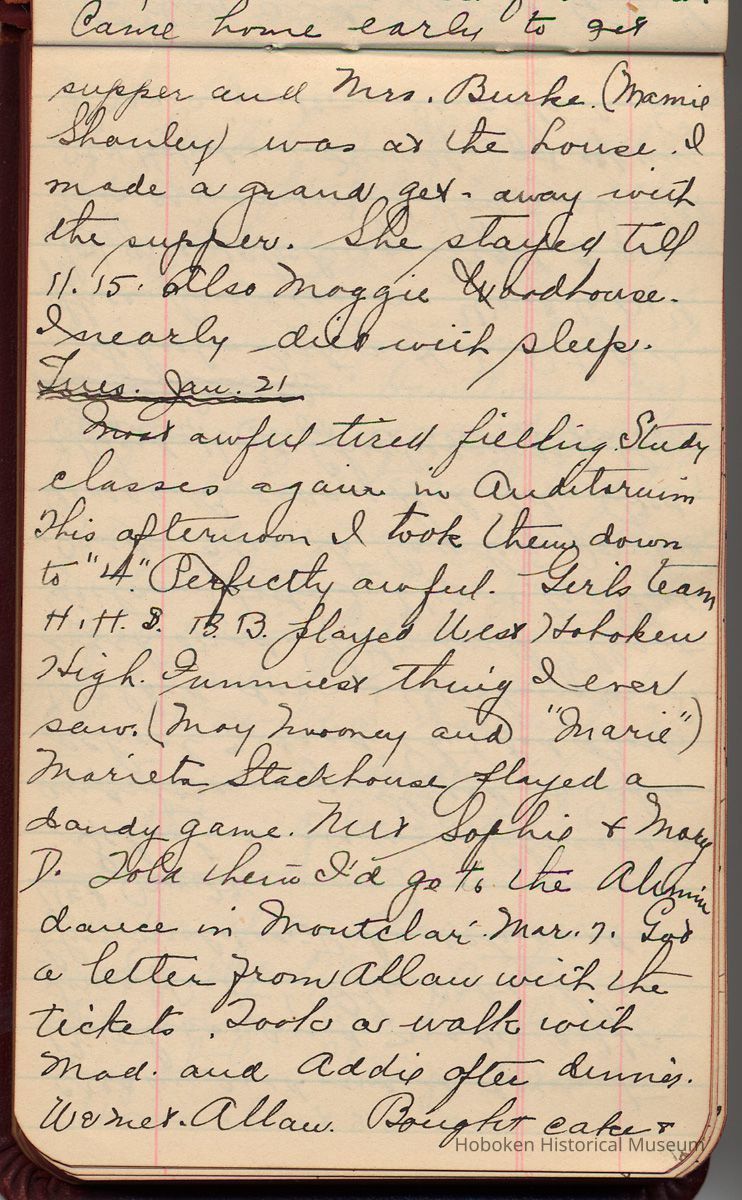 Came home early to get
supper and Mrs. Burke. (Mamie
Shanley) was at the house. I
made a grand get-away with
the supper. She stayed till
11.15. Also Maggie Woodhouse.
I nearly died with sleep.
Tues. Jan. 21
Most awful tired feeling. Study
classes again in Auditorium
This afternoon I took them down
to "4." Perfectly awful. Girls team
H.H.S. B.B. played West Hoboken
High. Funniest thing I ever
saw. (May Mooney and "Marie")
Marieta Stackhouse played a
dandy game. Met Sophie & Mary
D. Told them I'd go to the Alumni
dance in Montclair. Mar. 7. Got
a letter from Allan with the
tickets. Took a walk with
Mad. and Addie after dinner.
We met Allan. Bought cake &
Hoboken Historical Museum